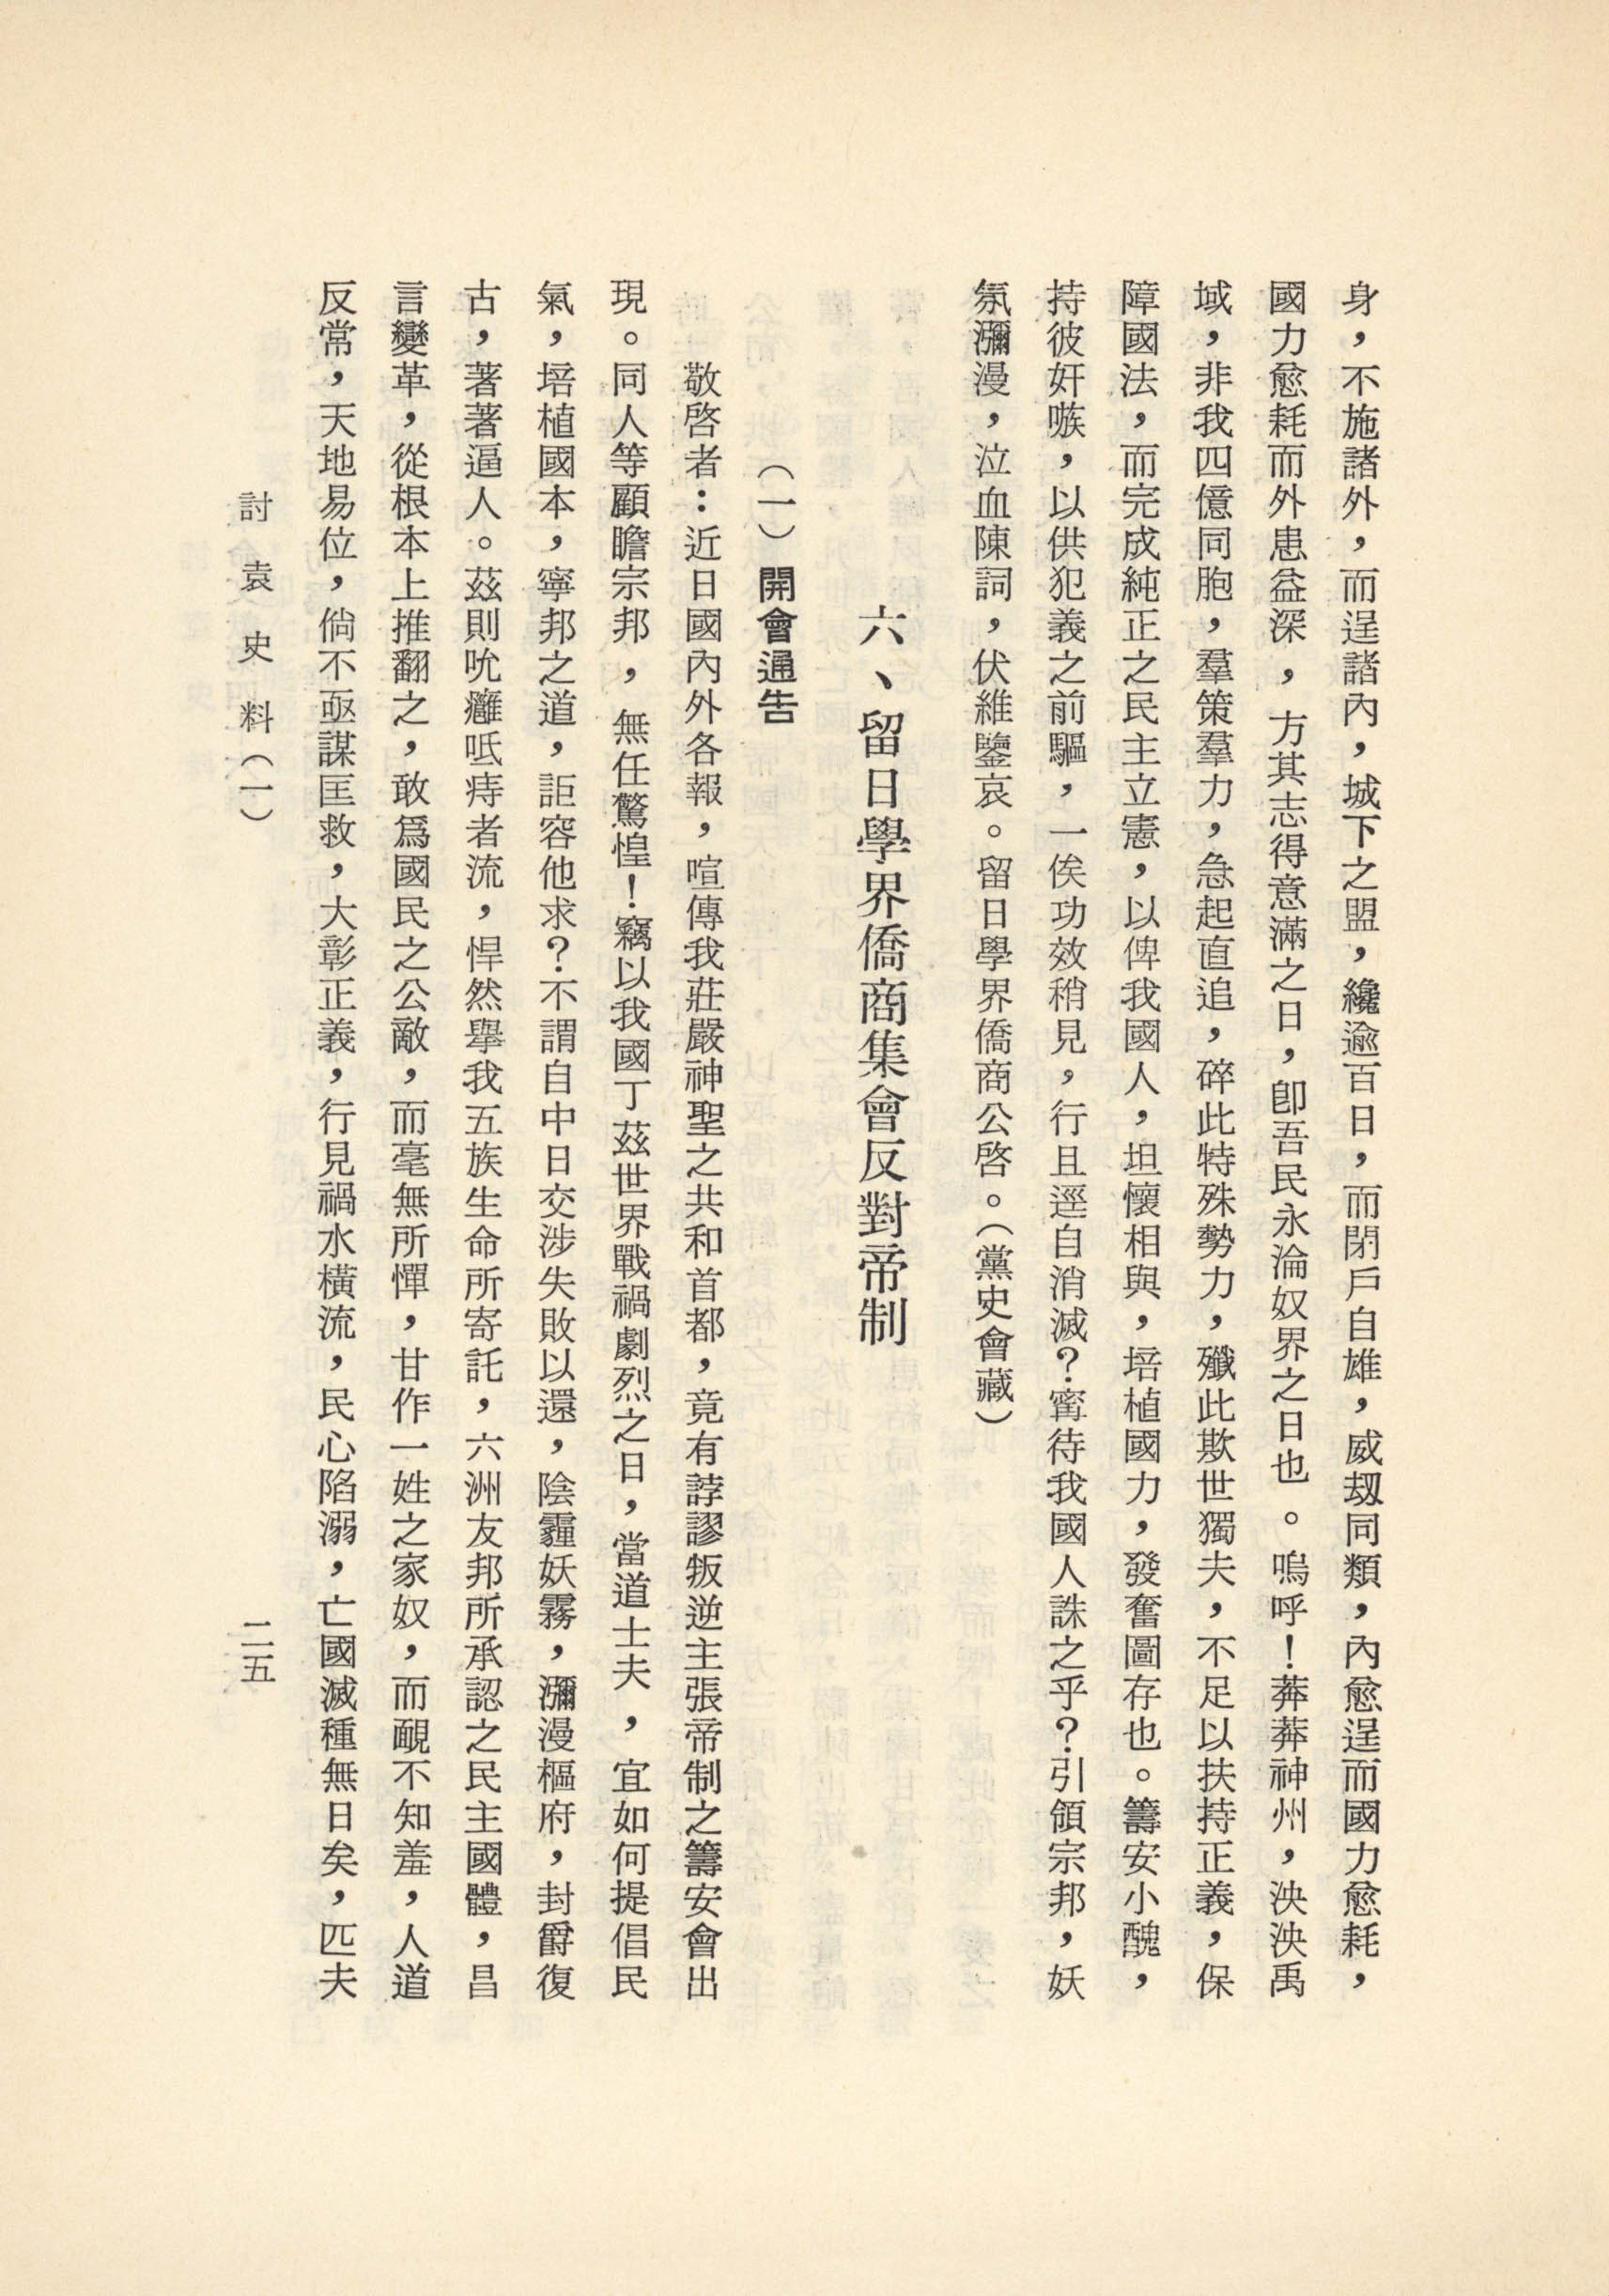 身，不施諸外，而逞諸內，城下之盟，纔逾百日，而閉戶自雄，威刼同類，內愈逞而國力愈耗，
國力愈耗而外患益深，方其志得意滿之日，卽吾民永淪奴界之日也。嗚呼！莽莽神州，泱泱禹
域，非我四億同胞，羣策羣力，急起直追，碎此特殊勢力，殲此欺世獨夫，不足以扶持正義，保
障國法，而完成純正之民主立憲，以俾我國人，坦懷相與，培植國力，發奮圖存也。籌安小醜，
持彼奸嗾，以供犯義之前驅，一俟功效稍見，行且逕自消滅？寗待我國人誅之乎？引領宗邦，妖
氛瀰漫，泣血陳詞，伏維鑒哀。留日學界僑商公啓。（黨史會藏）
六、留日學界僑商集會反對帝制
（一）開會通告
敬啓者：近日國內外各報，喧傳我莊嚴神聖之共和首都，竟有誖謬叛逆主張帝制之籌安會出
現。同人等顧瞻宗邦，無任驚惶！竊以我國丁茲世界戰禍劇烈之日，當道士夫，宜如何提倡民
氣，培植國本，寧邦之道，詎容他求？不謂自中日交涉失敗以還，陰霾妖霧，瀰漫樞府，封爵復
古，著著逼人。茲則吮癰呧痔者流，悍然舉我五族生命所寄託，六洲友邦所承認之民主國體，昌
言變革，從根本上推翻之，敢爲國民之公敵，而毫無所憚，甘作一姓之家奴，而靦不知羞，人道
反常，天地易位，倘不亟謀匡救，大彰正義，行見禍水橫流，民心陷溺，亡國滅種無日矣，匹夫
討袁史料（一）
二五